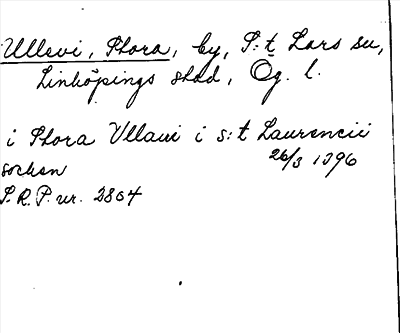 Ullevi, Stora, by, S:t Lars sn,
Linköpings stad, Ög. l.
i Stora Vllaui i s:t Laurencii
socken 26/3 1396
S.R.P. nr. 2864